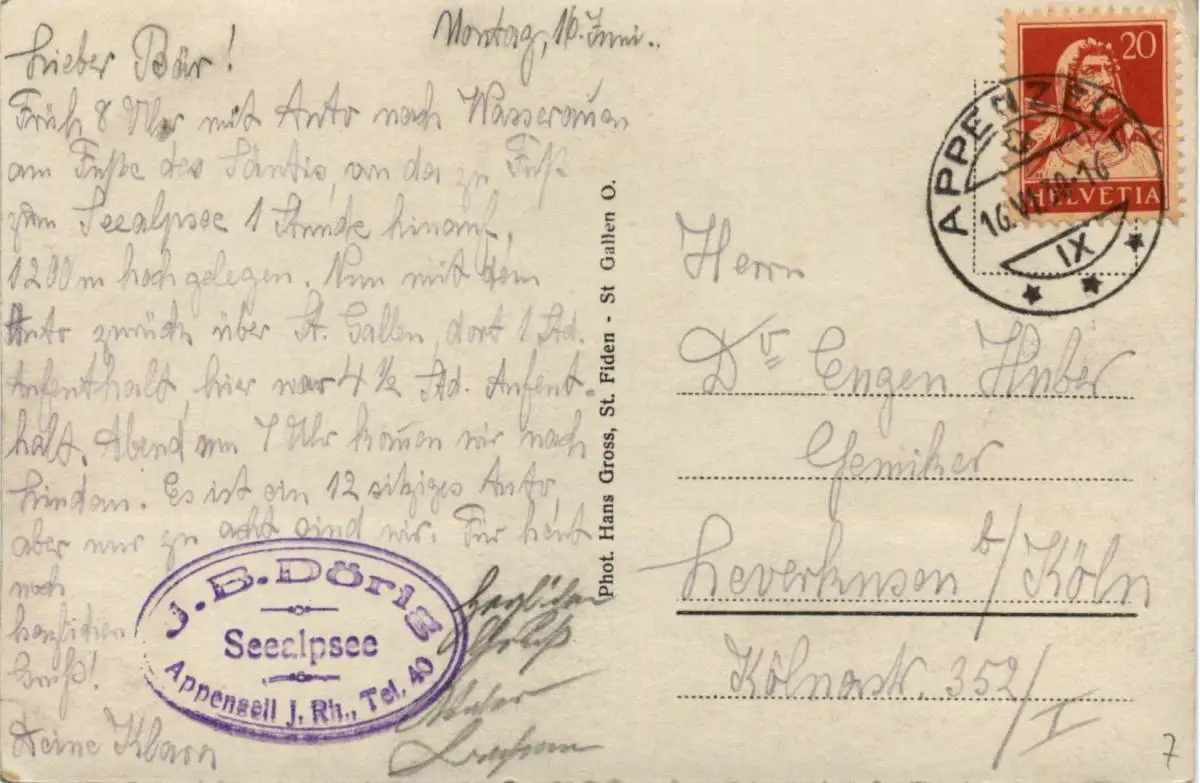 Montag, 16. Juni..
Lieber Bär!
Früh 8 Uhr mit Auto nach Wasserauen
am Fuße des Säntis, von da zu Fuß
zum Seealpsee 1 Stunde hinauf,
1200 m hochgelegen. Nun mit dem
Auto zurück über St. Gallen, dort 1 Std.
Aufenthalt, hier war 4 1/2 Std. Aufent-
halt. Abend um 7 Uhr kom̄en wir nach
Lindau. Es ist ein 12 sitziges Auto,
aber nur zu acht sind wir. Für heut
noch
herzlichen
Gruß!
Deine Klara
herzlichen
Gruß
J.B.Dörig
Seealpsee
Appenzell J. Rh., Tel. 40
Phot. Hans Gross, St. Fiden - St Gallen O.
20
HELVETIA
APPENZELL
16.VI.30-16
IX
Herrn
Dr Eugen Huber
Chemiker
Leverkusen b/Köln
Kölnerstr. 352/I
7